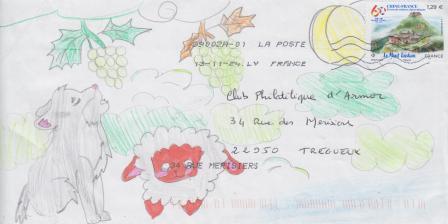 CHINE-FRANCE
60
1,29 €
09002A-01 LA POSTE
13-11-24 LV FRANCE
Le Mont Lushan
FRANCE
Club Philatélique d'Armor
34 Rue des Merisiers
22950 TREGUEUX
34 RUE MERISIERS